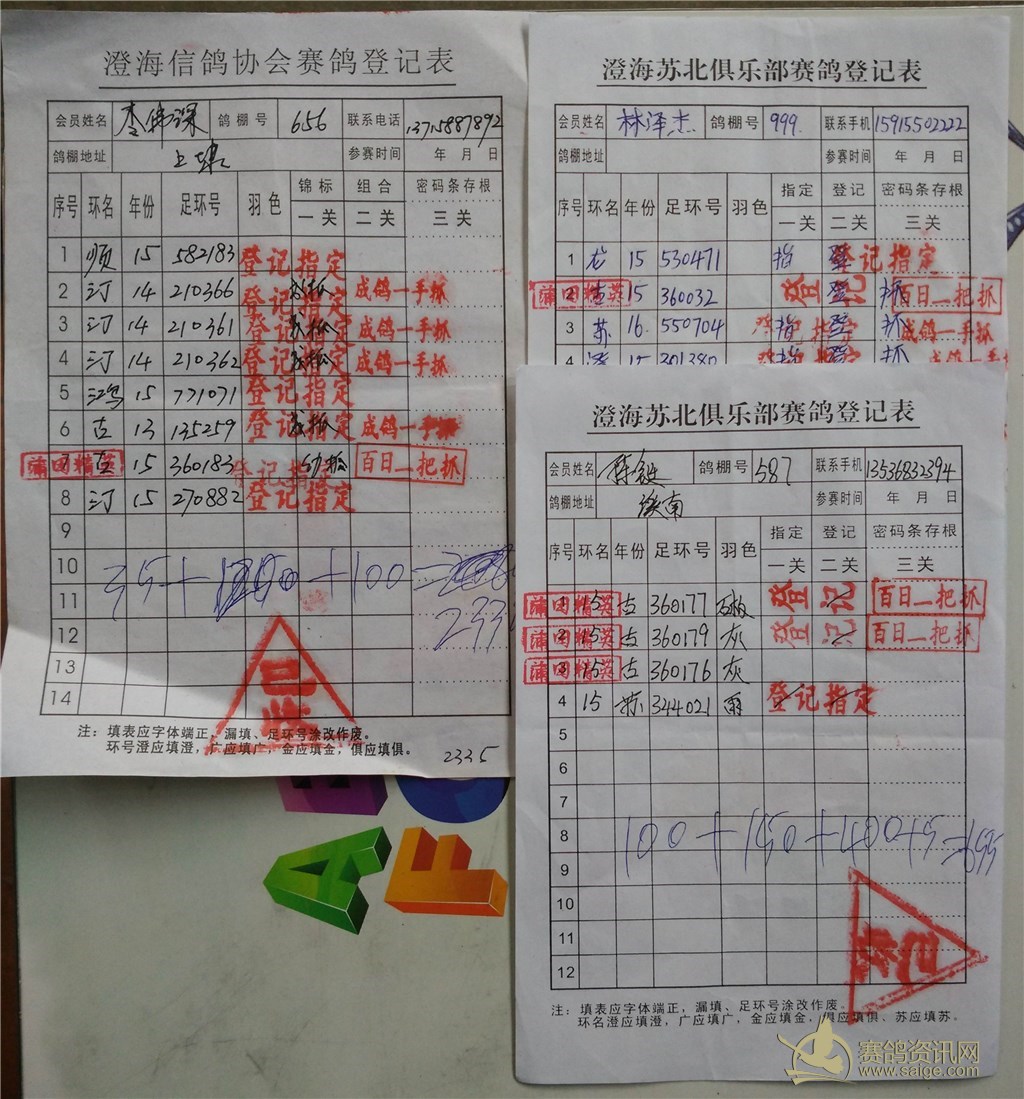 澄海信鸽协会赛鸽登记表
会员姓名 李伟深 鸽棚号 656 联系电话 13715887892
鸽棚地址 上埭 参赛时间 年 月 日
序号 环名 年份 足环号 羽色 锦标 组合 密码条存根
一关 二关 三关
1 顺 15 582183 登记指定
2 汀 14 210366 登记指定 成鸽一手抓
3 汀 14 210361 登记指定 成鸽一手抓
4 汀 14 210362 登记指定 成鸽一手抓
5 鸿 15 771071 登记指定
6 古 13 135259 登记指定 成鸽一手抓
7 莆田精英 古 15 360183 登记指定 幼抓 百日一把抓
8 汀 15 270882 登记指定
9
10
11
12
13
14
注：填表应字体端正，漏填、足环号涂改作废。
环号澄应填澄，广应填广，金应填金，俱应填俱。
2335
澄海苏北俱乐部赛鸽登记表
会员姓名 林泽杰 鸽棚号 999 联系手机 15915502222
鸽棚地址 参赛时间 年 月 日
序号 环名 年份 足环号 羽色 指定 登记 密码条存根
一关 二关 三关
1 龙 15 530471 指 登 登记指定
2 莆田精英 古 15 360032 登记 登 抓 百日一把抓
3 苏 16 550704 指 登 抓 成鸽一手抓
4 澄 15 301380 指 登 抓
澄海苏北俱乐部赛鸽登记表
会员姓名 鸽棚号 587 联系手机 13536832394
鸽棚地址 涂南 参赛时间 年 月 日
序号 环名 年份 足环号 羽色 指定 登记 密码条存根
一关 二关 三关
1 莆田精英 15 古 360177 登记 百日一把抓
2 莆田精英 15 古 360179 灰 登记 百日一把抓
3 莆田精英 15 古 360176 灰
4 15 苏 344021 雨 登记指定
5
6
7
8
9
100+150+400+5=655
10
11
12
注：填表应字体端正，漏填、足环号涂改作废。
环名澄应填澄，广应填广，金应填金，俱应填俱、苏应填苏。
赛鸽资讯网
www.saige.com